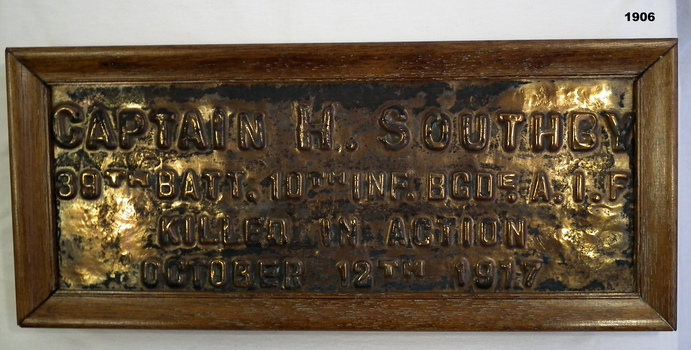 1906
CAPTAIN H. SOUTHBY
39TH BATT. 10TH INF. BGDE. A.I.F
KILLED IN ACTION
OCTOBER 12TH 1917